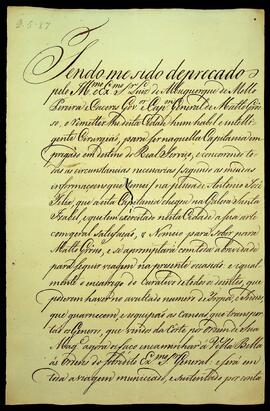 Tendo me sido deprecado
pelo Illmo e Exmo Sr Luiz de Albuquerque de Mello
Pereira e Caceres Govor e Capam General de Matto Gros-
so, o remetter lhe desta Cidade hum habil e intelli-
gente Cirurgião, para ser naquella Capitania em-
pregado em destino do Real Serviço, e concorrendo to-
das as circunstancias necessarias, segundo as mais in-
formaçoens que tomei na pessoa de Antonio José
que a esta Capitania chegou na Galera Santa
Izabel, e que tem exercitado nesta Cidade a sua arte
com geral satisfação, o Nomeio para subir para
Matto Grosso, e se apromptará com toda a brevidade
para seguir viagem na presente occasião e igual-
mente o encarrego do Curativo de todos os doentes, que
poderem haver no avultado numero de Tropa, e Indios
que guarnecem e esquipão as Canoas, que transpor-
tão os Generos, que vindos da Corte por Ordem de Sua
Magde agora os faço encaminhar a Villa Bella
às Ordens do sobredito Exmo Sr General, e será em
toda a viagem municiado, e sustentado por conta